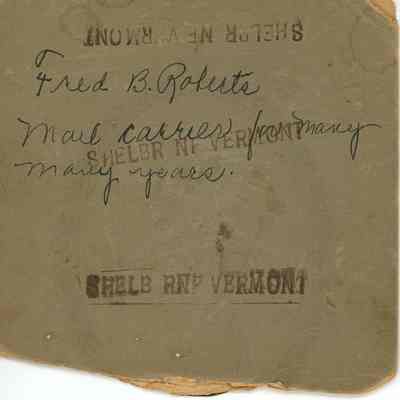 SHELBR NE VERMONT
Fred B. Roberts
Mail carrier for many
SHELBR NF VERMONT
many years.
SHELB RNF VERMONT